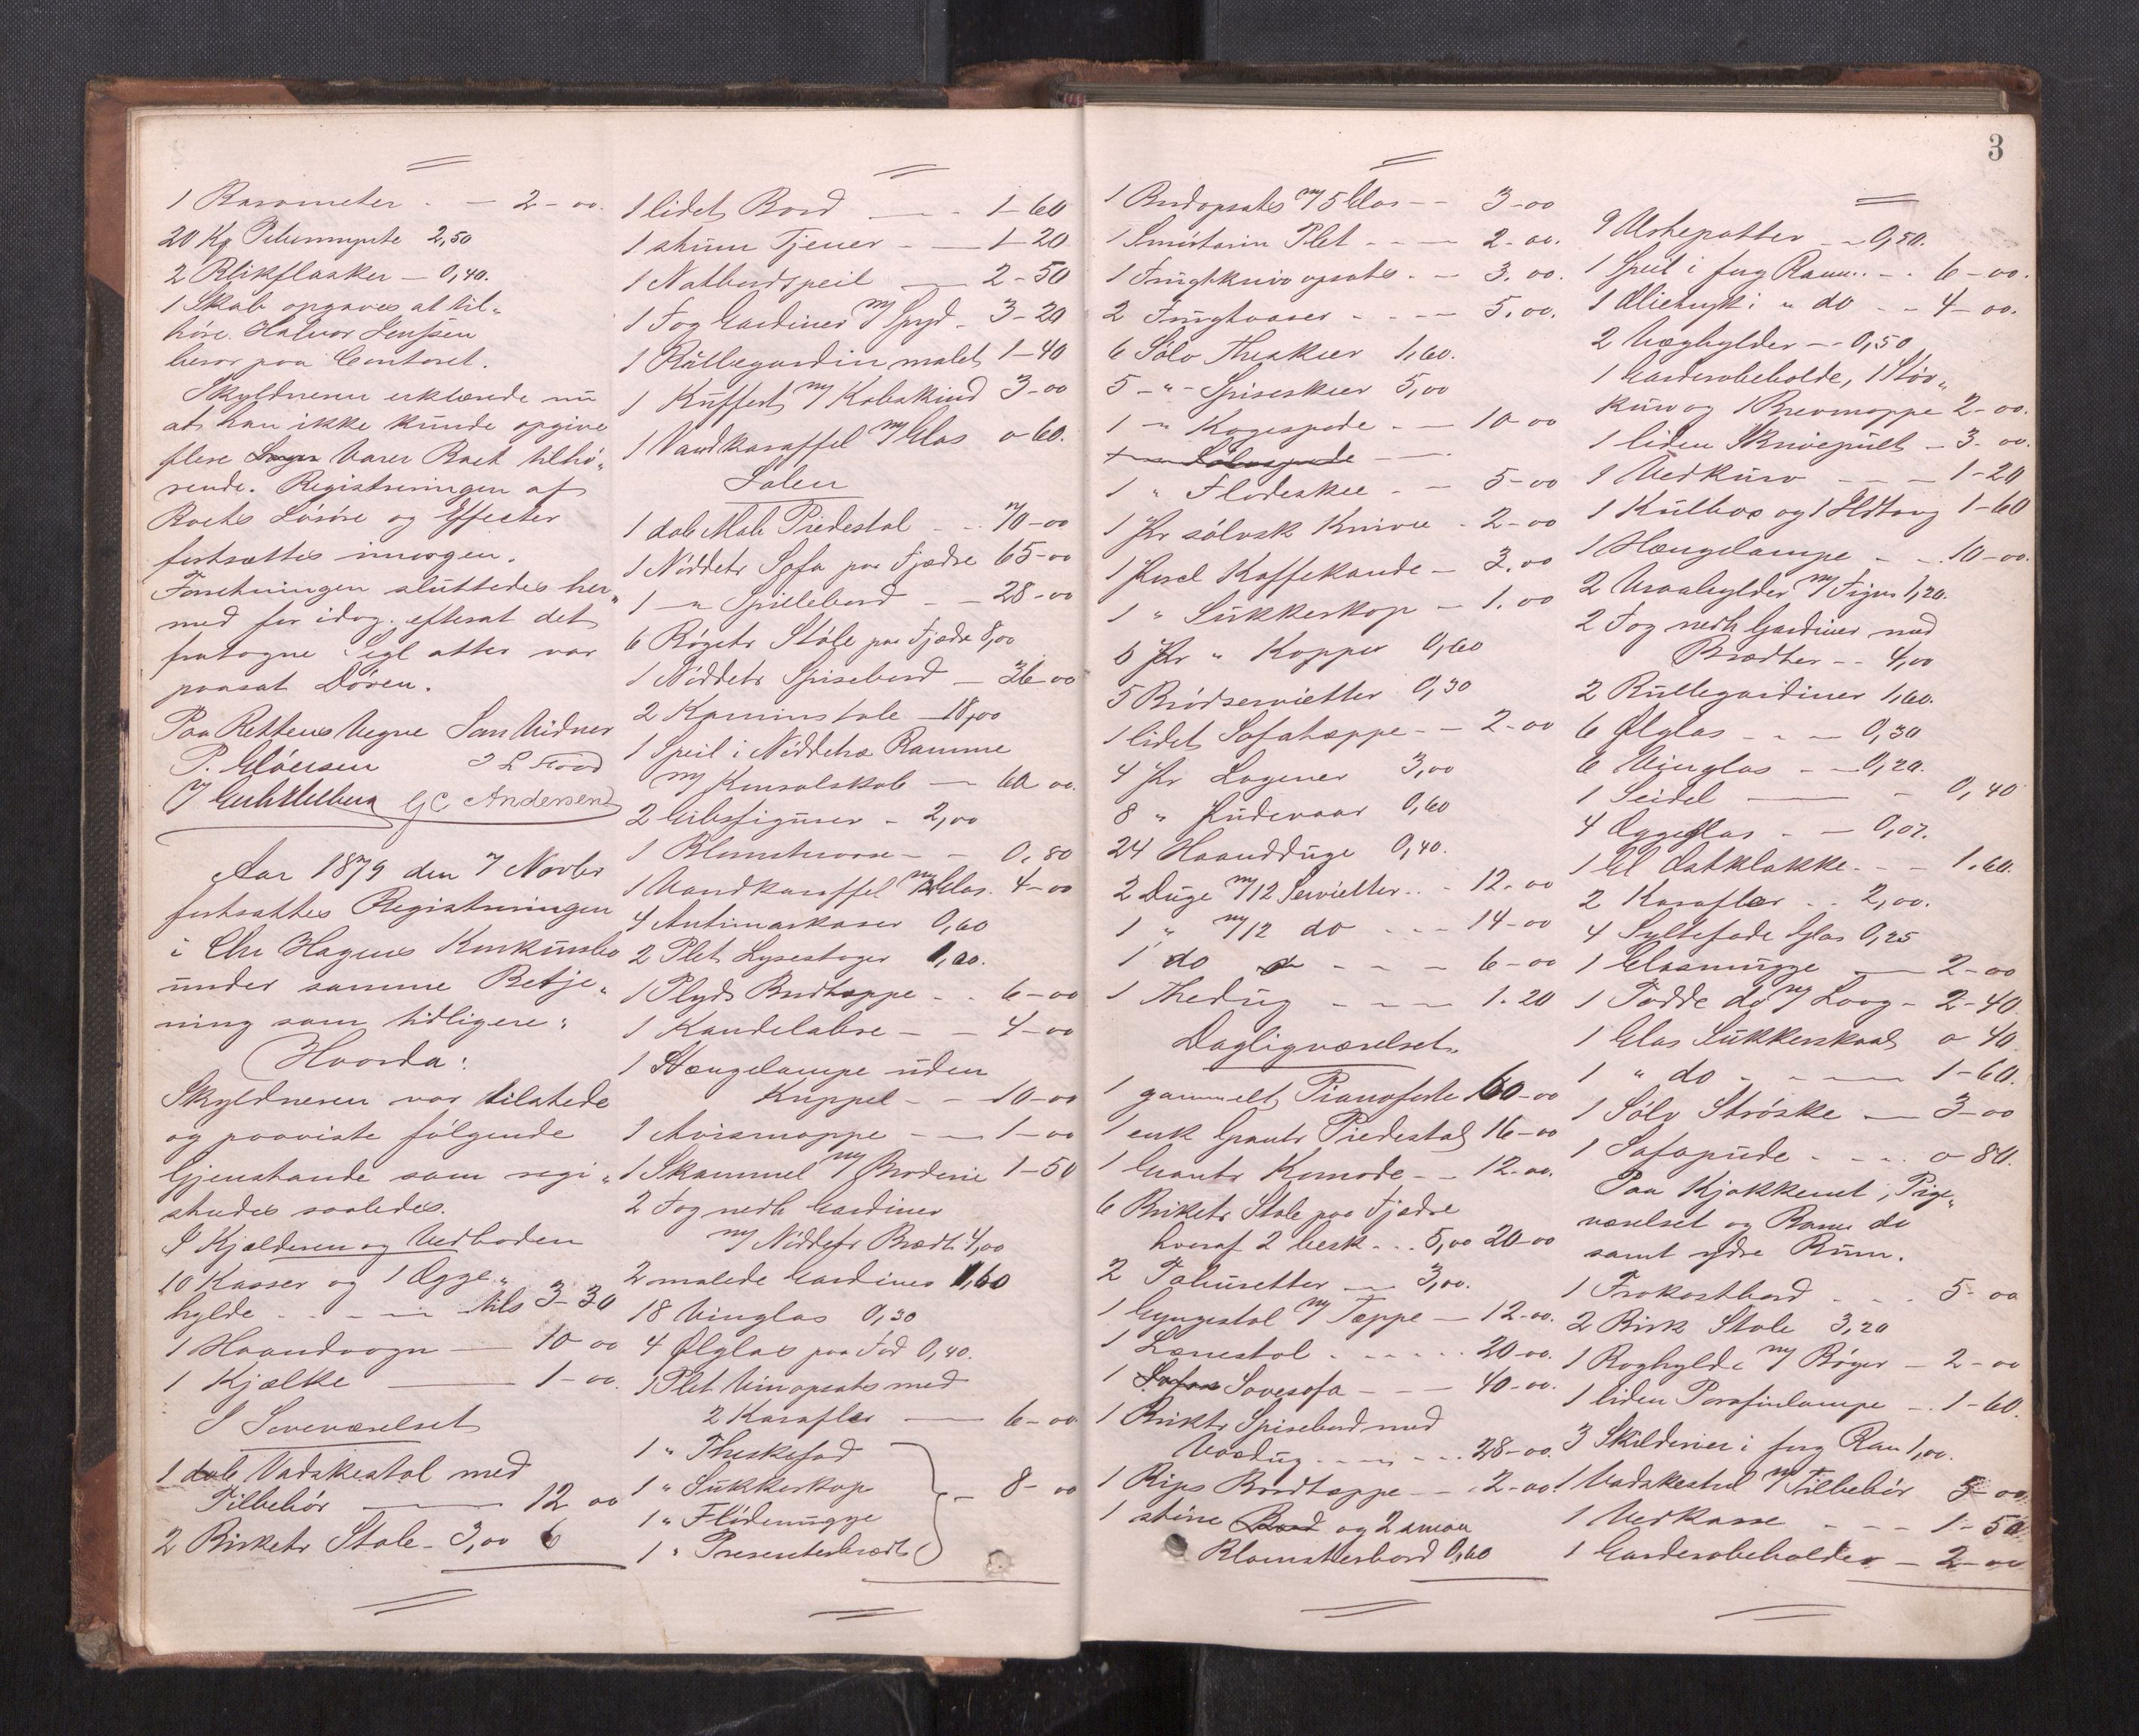 1 Barometer - 2-00.
20 Kg 2,50
2 Blikflasker - 0,40.
1 Skab opgaves at til„
høre Halvor Jenssen
beror paa Contoret.
Skyldneren erklærede nu
at han ikke kunde opgive
flere Varer Boet tilhø„
rende. Registreringen af
Boets Løsøre og Effecter
fortsættes imorgen.
Forretningen sluttedes her„
med for idag, efterat det
fratagne Segl atter var
paasat Døren.
Paa Rettens Vegne Som Vidner
G C Andersen
Aar 1879 den 7 Novbr
fortsattes Registreringen
i Chr Hagens Konkursbo
under samme Betje„
ning som tidligere.
Hvorda:
Skyldneren var tilstede
og paaviste følgende
Gjenstande som regi„
streredes saaledes.
I Kjælderen og Vedboden
10 Kasser og 1 Ægge„
hylde - - - Nils 3-30
1 Haandvogn - 10-00
1 Kjælke - 1-00.
I Soveværelset
1 dob Vadskestol med
Tilbehør - 12 00
2 Birketr Stole - 3,00 6
1 lidet Bord - - 1-60
1 stum Tjener - - 1-20
1 Natbordspeil - 2-50
1 Fog Gardiner m/ Spyd - 3-20
1 Rullegardin malet 1-40
1 Kuffert m/ Kobskind 3-00
1 Vandkaraffel m/ Glas 0-60.
Salen
1 dob Mah Piedestal - - 70-00
1 Nøddetr Sofa paa Fjædre 65-00
1 -„ Spillebord - - 28-00
6 Bøgetr Stole paa Fjædre 8,00
1 Nøddetr Spisebord - 36-00
2 Kaminstole - 18,00
1 Speil i Nøddetræ Ramme
m/ Konsolskab - 60 00.
2 Gibsfigurer - 2,00
1 Blomstervase - - 0,80
1 Vandkaraffel m/2 Glas. 4-00
4 Antimarkaser 0,60
2 Plet Lysestager 1,00.
1 Plyds Bordtæppe - - 6-00
1 Kandelabre - - 4-00
1 Hængelampe uden
Kuppel - - 10-00
1 Avismappe - - 1-00
1 Skammel m/ Broderie 1-50
2 Fog nedh Gardiner
m/ Nøddetr Brædt 4,00
2 malede Gardiner 1,60
18 Vinglas 0,30
4 Ølglas paa Fod 0,40.
1 Plet Vinopsats med
2 Karafler - 6-00
1 „ Theskefad
1 „ Sukkerkop - 8-00
1 „ Flødemugge
1 „ Presenterbrædt
3
1 Bordopsats m/ 5 Glas - - 3-00
1 Plet - - - 2-00.
1 Frugtkniv opsats - - 3.00.
2 Frugtvaser - - - 5.00.
6 Sølv Theskeer 1,60.
5 -„- Spiseskeer 5,00
1 -„ Kagespade - - 10-00
1 „ Flødeskee - - 5-00
1 Pr sølvsk Knive - 2-00
1 Porcel Kaffekande - 3.00
1 „ Sukkerkop - 1.00
6 Pr „ Kopper 0,60
5 Brødservietter 0,30
1 lidet Sofatæppe - - 2-00
4 Pr Lagener 3,00
8 „ Pudevaar 0,60
24 Haandduge 0,40.
2 Duge m/12 Servietter - - 12.00
1 „ m/12 do - - - 14-00
1 do - - - 6-00
1 Thedug - - - 1.20
Dagligværelset.
1 gammelt Pianoforte 160-00
1 enk Grantr Piedestal 16-00
1 Grantr Komode - - 12-00.
6 Birketr Stole paa Fjædre
hvoraf 2 besk - - 5,00 20-00
2 Tabouretter - 3,00.
1 Gyngestol m/ Tæppe - 12-00.
1 Lænestol - - - - 20-00.
1 Sovesofa - - - 40-00.
1 Birktr Spisebord med
Voxdug - - - - 28-00.
1 Rips Bordtæppe - - 2-00.
1 større og 2 smaa
Blomsterbord 0,60
9 Urtepotter - - 0,50.
1 Speil i forg Ram - - 6-00.
1 Olietryk i „ do - - 4-00.
2 Væghylder - - 0,50
1 Garderobeholde, 1 Støv„
kurv og 1 Brevmappe 2-00.
1 liden Skrivepult - 3-00.
1 Vedkurv - - - 1-20
1 Kulbox og 1 Ildtang 1-60
1 Hængelampe - - 10-00.
2 Vraahylder m/ Figur 1,20.
2 Fog nedh Gardiner med
Brædter - - 4,00
2 Rullegardiner 1,60.
6 Ølglas - - - 0,30
6 Vinglas - - 0,20.
1 Seidel - - 0,40
4 Æggeglas - - 0,07.
1 Gl Ostklokke - - - 1.60.
2 Karafler - - 2,00.
4 Syltefade Glas 0,25
1 Glasmugge - 2-00
1 Todde do m/ Laag - 2-40
1 Glas Sukkerskaal 0 40
1 „ do - - - 1-60.
1 Sølv Strøske - 3-00
1 Sofapude - - - 0-80.
Paa Kjøkkenet, Pige„
værelset og Barne do
samt ydre Rum.
1 Frokostbord - - - 5-00
2 Birk Stole 3,20
1 Boghylde m/ Bøger - 2-00
1 liden Parafinlampe - 1-60.
3 Skilderier i forg Ram 1,00.
1 Vadskestol m/ Tilbehør 5-00.
1 Vedkasse - - - 1-50.
1 Garderobeholder - 2-00